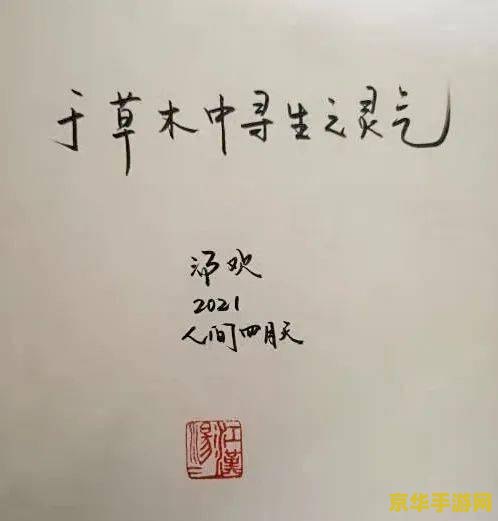 于草木中寻生之灵气
欢
2021
人间四月天
江漢
湯
京华手游网